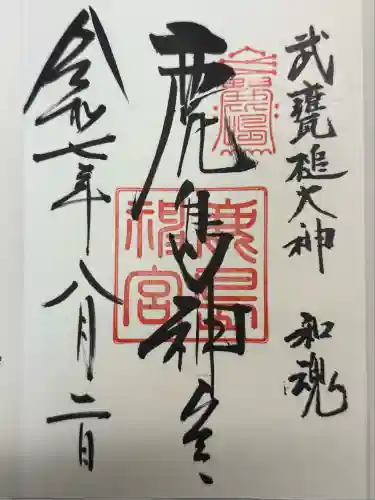 武甕槌大神 和魂
鹿島神宮
鹿島神宮
令和七年八月二日